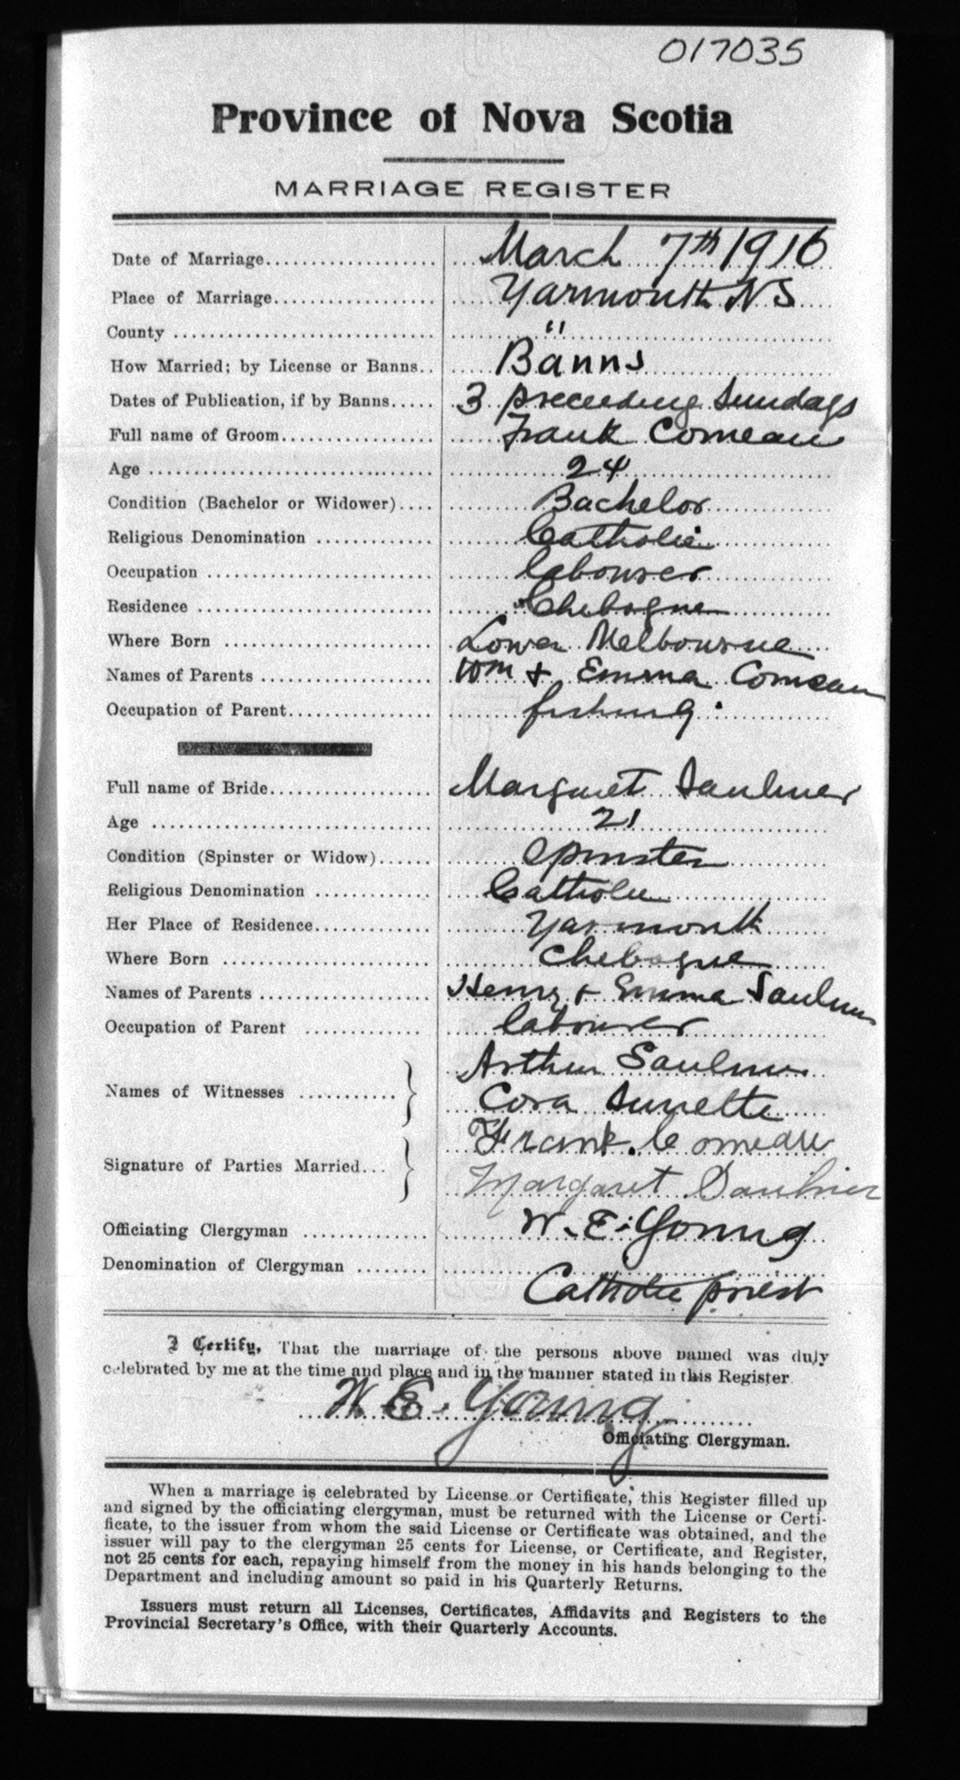 017035
Province of Nova Scotia
MARRIAGE REGISTER
Date of Marriage March 7th 1916
Place of Marriage Yarmouth NS
County "
How Married; by License or Banns Banns
Dates of Publication, if by Banns 3 preceeding Sundays
Full name of Groom Frank Comeau
Age 24
Condition (Bachelor or Widower) Bachelor
Religious Denomination Catholic
Occupation labourer
Residence Chebogue
Where Born Lower Melbourne
Names of Parents Wm + Emma Comeau
Occupation of Parent fishing
Full name of Bride Margaret Saulnier
Age 21
Condition (Spinster or Widow) Spinster
Religious Denomination Catholic
Her Place of Residence Yarmouth
Where Born Chebogue
Names of Parents Henry + Emma Saulnier
Occupation of Parent labourer
Arthur Saulnier
Names of Witnesses
Cora Surette
Frank Comeau
Signature of Parties Married
Margaret Saulnier
Officiating Clergyman W. E. Young
Denomination of Clergyman
Catholic priest
I Certify, That the marriage of the persons above named was duly
celebrated by me at the time and place and in the manner stated in this Register
W. E. Young
Officiating Clergyman.
When a marriage is celebrated by License or Certificate, this Register filled up
and signed by the officiating clergyman, must be returned with the License or Certi-
ficate, to the issuer from whom the said License or Certificate was obtained, and the
issuer will pay to the clergyman 25 cents for License, or Certificate, and Register,
not 25 cents for each, repaying himself from the money in his hands belonging to the
Department and including amount so paid in his Quarterly Returns.
Issuers must return all Licenses, Certificates, Affidavits and Registers to the
Provincial Secretary's Office, with their Quarterly Accounts.